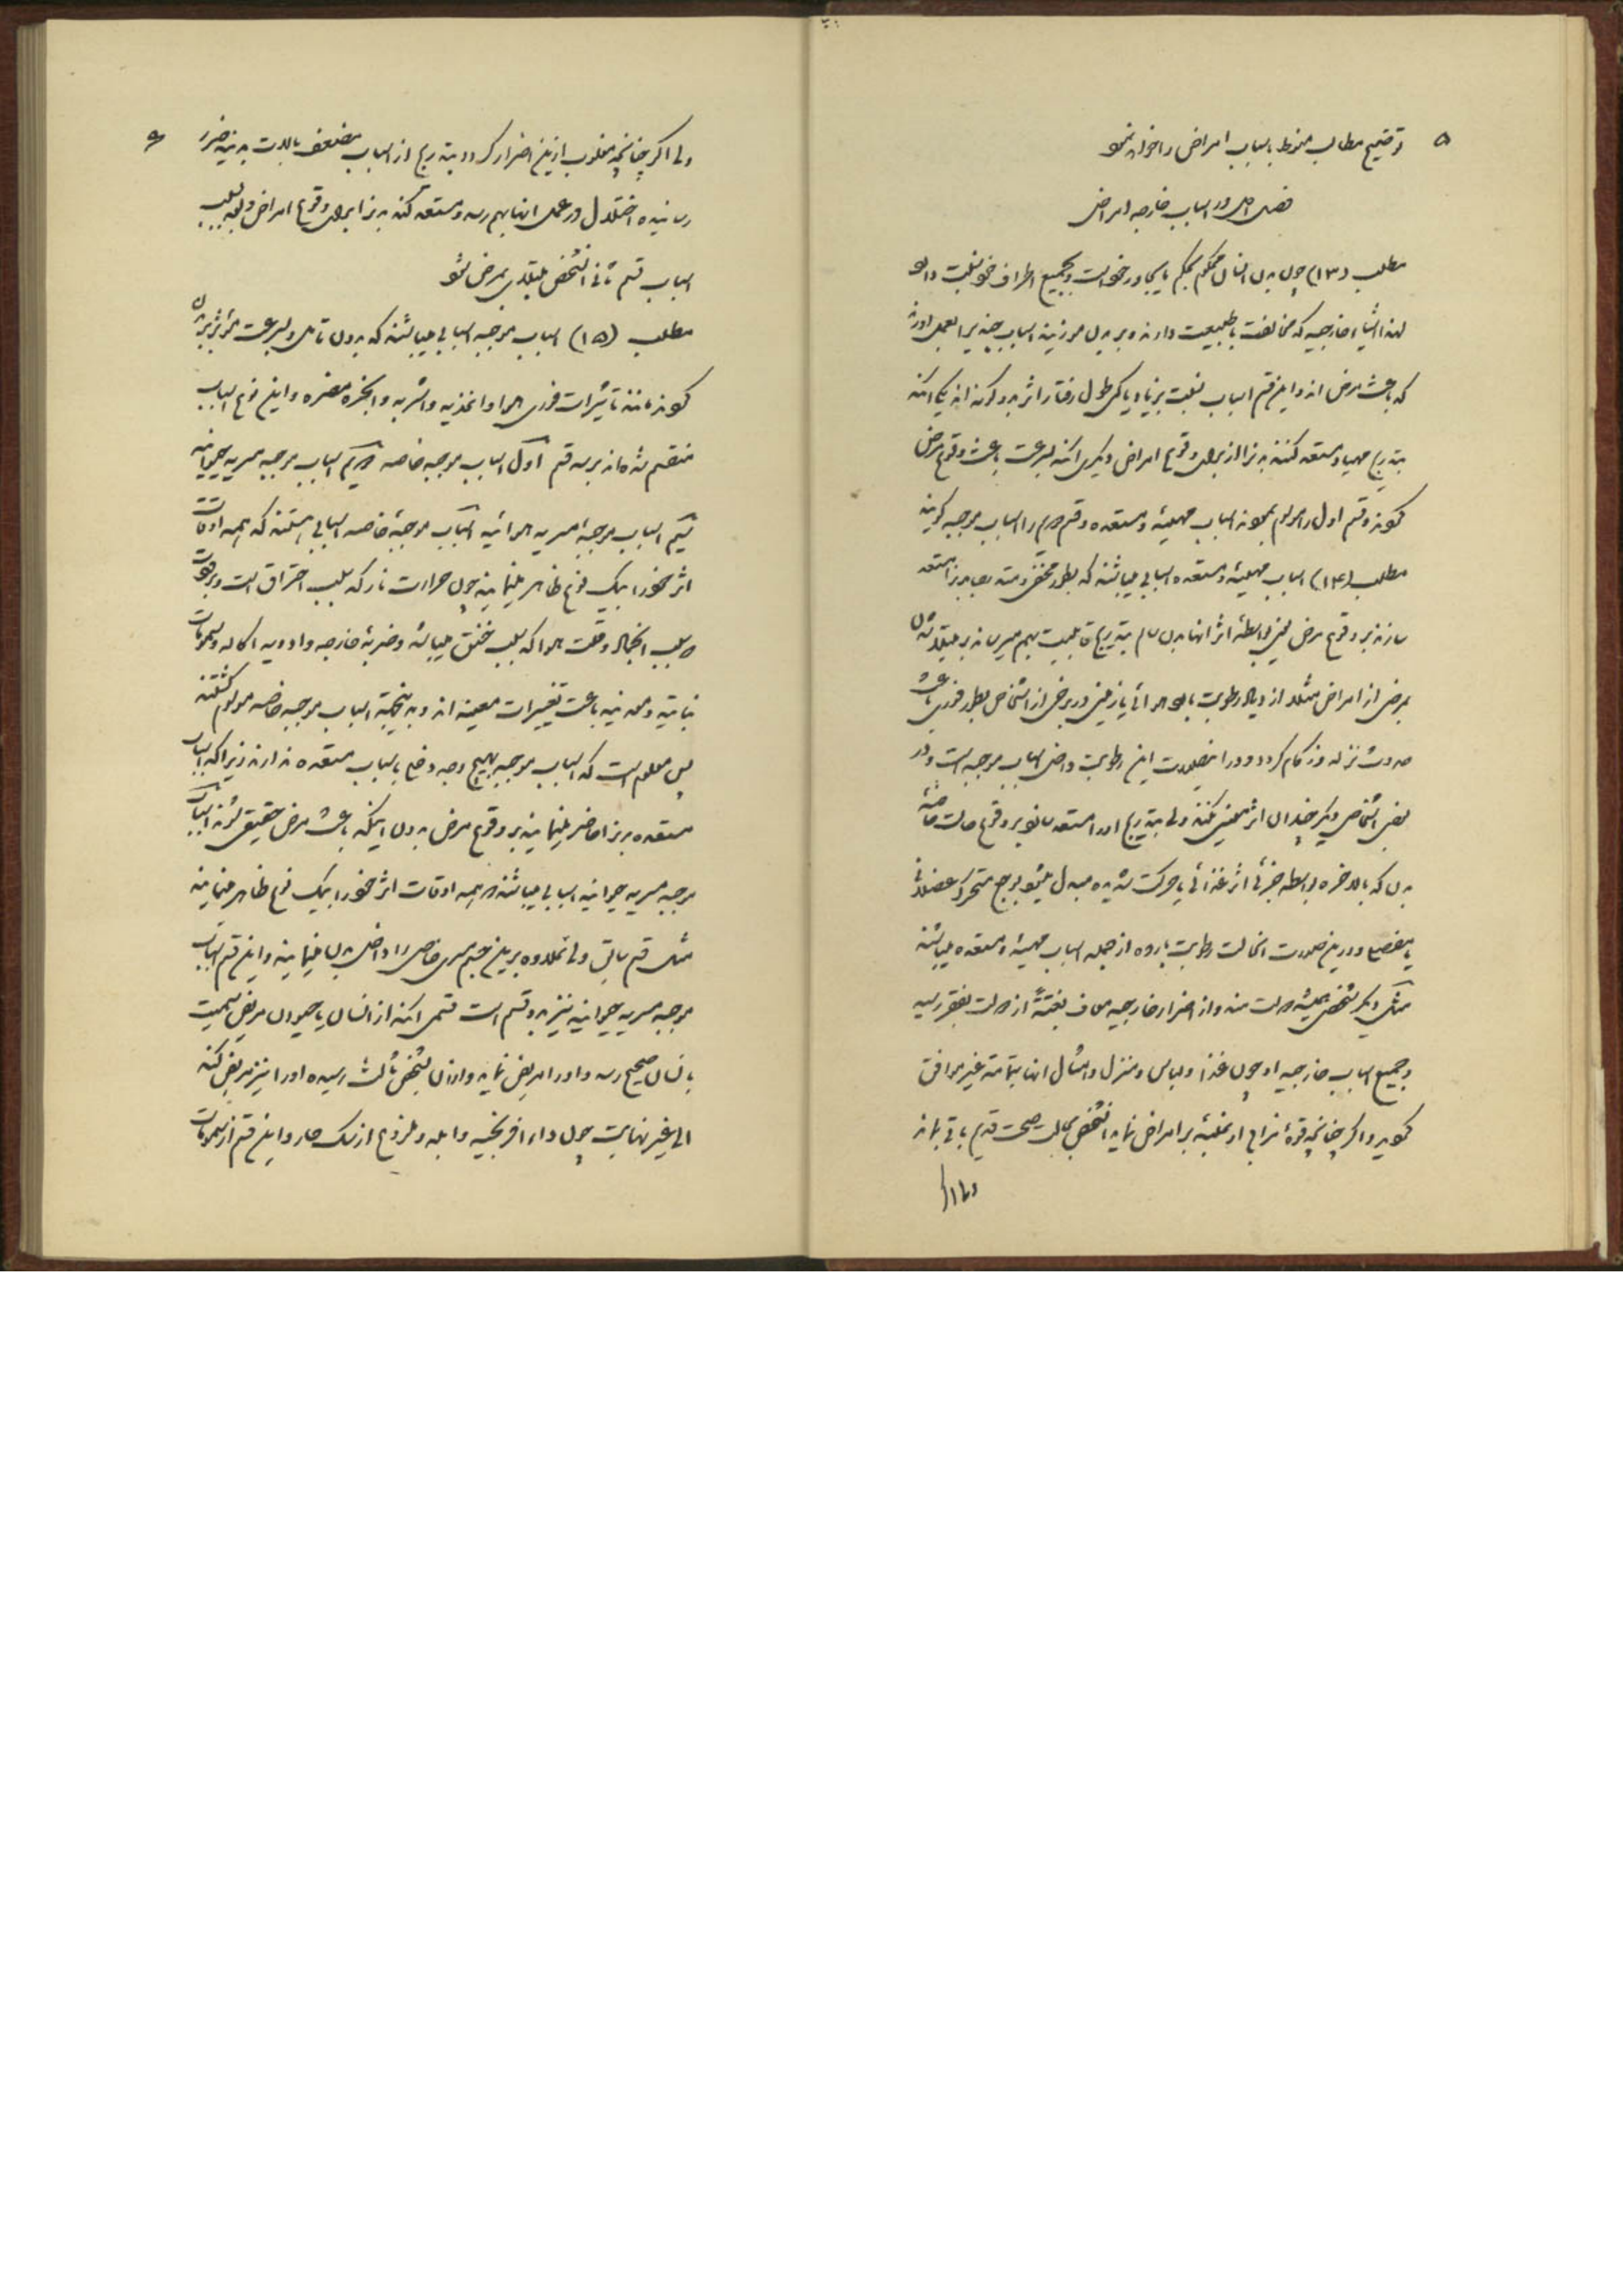 ۵
توضیح مطالب منوط باسباب امراض را خواهد نمود
فصل اول در اسباب خارجه امراض
مطلب (۱۳) چون بدن انسان محکوم بحکم مایجاور خود است و بجمیع اطراف خود نسبت دارد
لهذا اشیاء خارجیه که مخالفت با طبیعت دارند و بر بدن مرزینه اسباب چند بر العمل اورند
که باعث مرض اند و این قسم اسباب نسبت بزیاد یا کمی طول رفتار اثر بدو گونه اند یکی آنکه
بتدریج مهیا و مستعد کنند بدنرا از برای وقوع امراض دیگری آنکه بسرعت باعث وقوع مرض
گردند و قسم اول را موسوم نموده اند باسباب مهیئه و مستعده و قسم دوم را اسباب موجبه گویند
مطلب (۱۴) اسباب مهیئه و مستعده اسبابی میباشند که بطور مخفی و متدرجا بدنرا مستعد
سازند بر وقوع مرض یعنی بواسطه اثر آنها بدن سالم بتدریج قابلیت بهم میرساند بر مبتلا شدن
بمرضی از امراض مثلا ازدیاد رطوبت با هوائی یا زمینی در برخی از اشخاص بطور فوری باعث
حدوث نزله و زکام گردد و در اینصورت این رطوبت داخل اسباب موجبه است و در
بعض اشخاص دیگر چندان اثر معینی نکند ولی بتدریج او را مستعد سازد بر وقوع حالت خاصه
بدن که بالاخره بواسطه جزئی اثر غذائی یا حرکت شدیده مبدل میشود بوجع متحرک عضلانی
یا مفصلی و در این صورت انحالت رطوبت بارده از جمله اسباب مهیئه و مستعده میباشند
مثال دیگر شخصی همیشه دولت مند و از اضرار خارجیه معاف بغتتة از دولت بفقر رسید
و جمیع اسباب خارجیه او چون غذا و لباس و منزل و امثال انها بتمامه غیر موافق
گردید و اگر چنانچه قوه مزاج او غلبه بر امراض نماید انشخص بحالت صحت قدیم باقی بماند
و اما اگر
۶
ولی اگر چنانچه مغلوب ازین اضرار گردد بتدریج از اسباب مضعف بالات بدنیه ضرر
رسانیده اختلال در عمل انها بهم رسد و مستعد کند بدنرا برای وقوع امراض و بعد بسبب
اسباب قسم ثانی انشخص مبتلای بمرض شود
مطلب (۱۵) اسباب موجبه اسبابی میباشند که بدون تامل و بسرعت مؤثر بر بدن
گردند مانند تاثیرات فوری هوا و اغذیه و اشربه و ابخره مضره و این نوع اسباب
منقسم شده اند بر سه قسم اول اسباب موجبه خاصه دوم اسباب موجبه مسریه حیوانیه
سیم اسباب موجبه مسریه هوائیه اسباب موجبه خاصه اسبابی هستند که همه اوقات
اثر خود را بیک نوع ظاهر مینمایند چون حرارت نار که بسبب احتراق است و برودت
بسبب انجماد و قلت هوا که بسبب خنق میباشد و ضربه خارجه و ادویه اکاله و سمومات
نباتیه و معدنیه باعث تغییرات معینه اند و بدینجهت اسباب موجبه خاصه موسوم گشتند
پس معلوم است که اسباب موجبه بهیچ وجه دخلی باسباب مستعده ندارند زیرا که اسباب
مستعده بدنرا حاضر مینمایند بر وقوع مرض بدون اینکه باعث مرض حقیقی شوند اسباب
موجبه مسریه حیوانیه اسبابی میباشند در همه اوقات اثر خود را بیک نوع ظاهر مینمایند
مثل قسم سابق ولی علاوه بر این جسم مسری خاصی را داخل بدن مینمایند و این قسم اسباب
موجبه مسریه حیوانیه نیز بدو قسم است قسمی آنکه از انسان یا حیوان مریض سمیت
بانسان صحیح رسد و او را مریض نماید و از ان بشخص ثالث رسیده او را نیز مریض کند
الی غیر نهایت چون داء افرنجیه و ابله و ملذوع از سگ هار و این قسم از سمومات